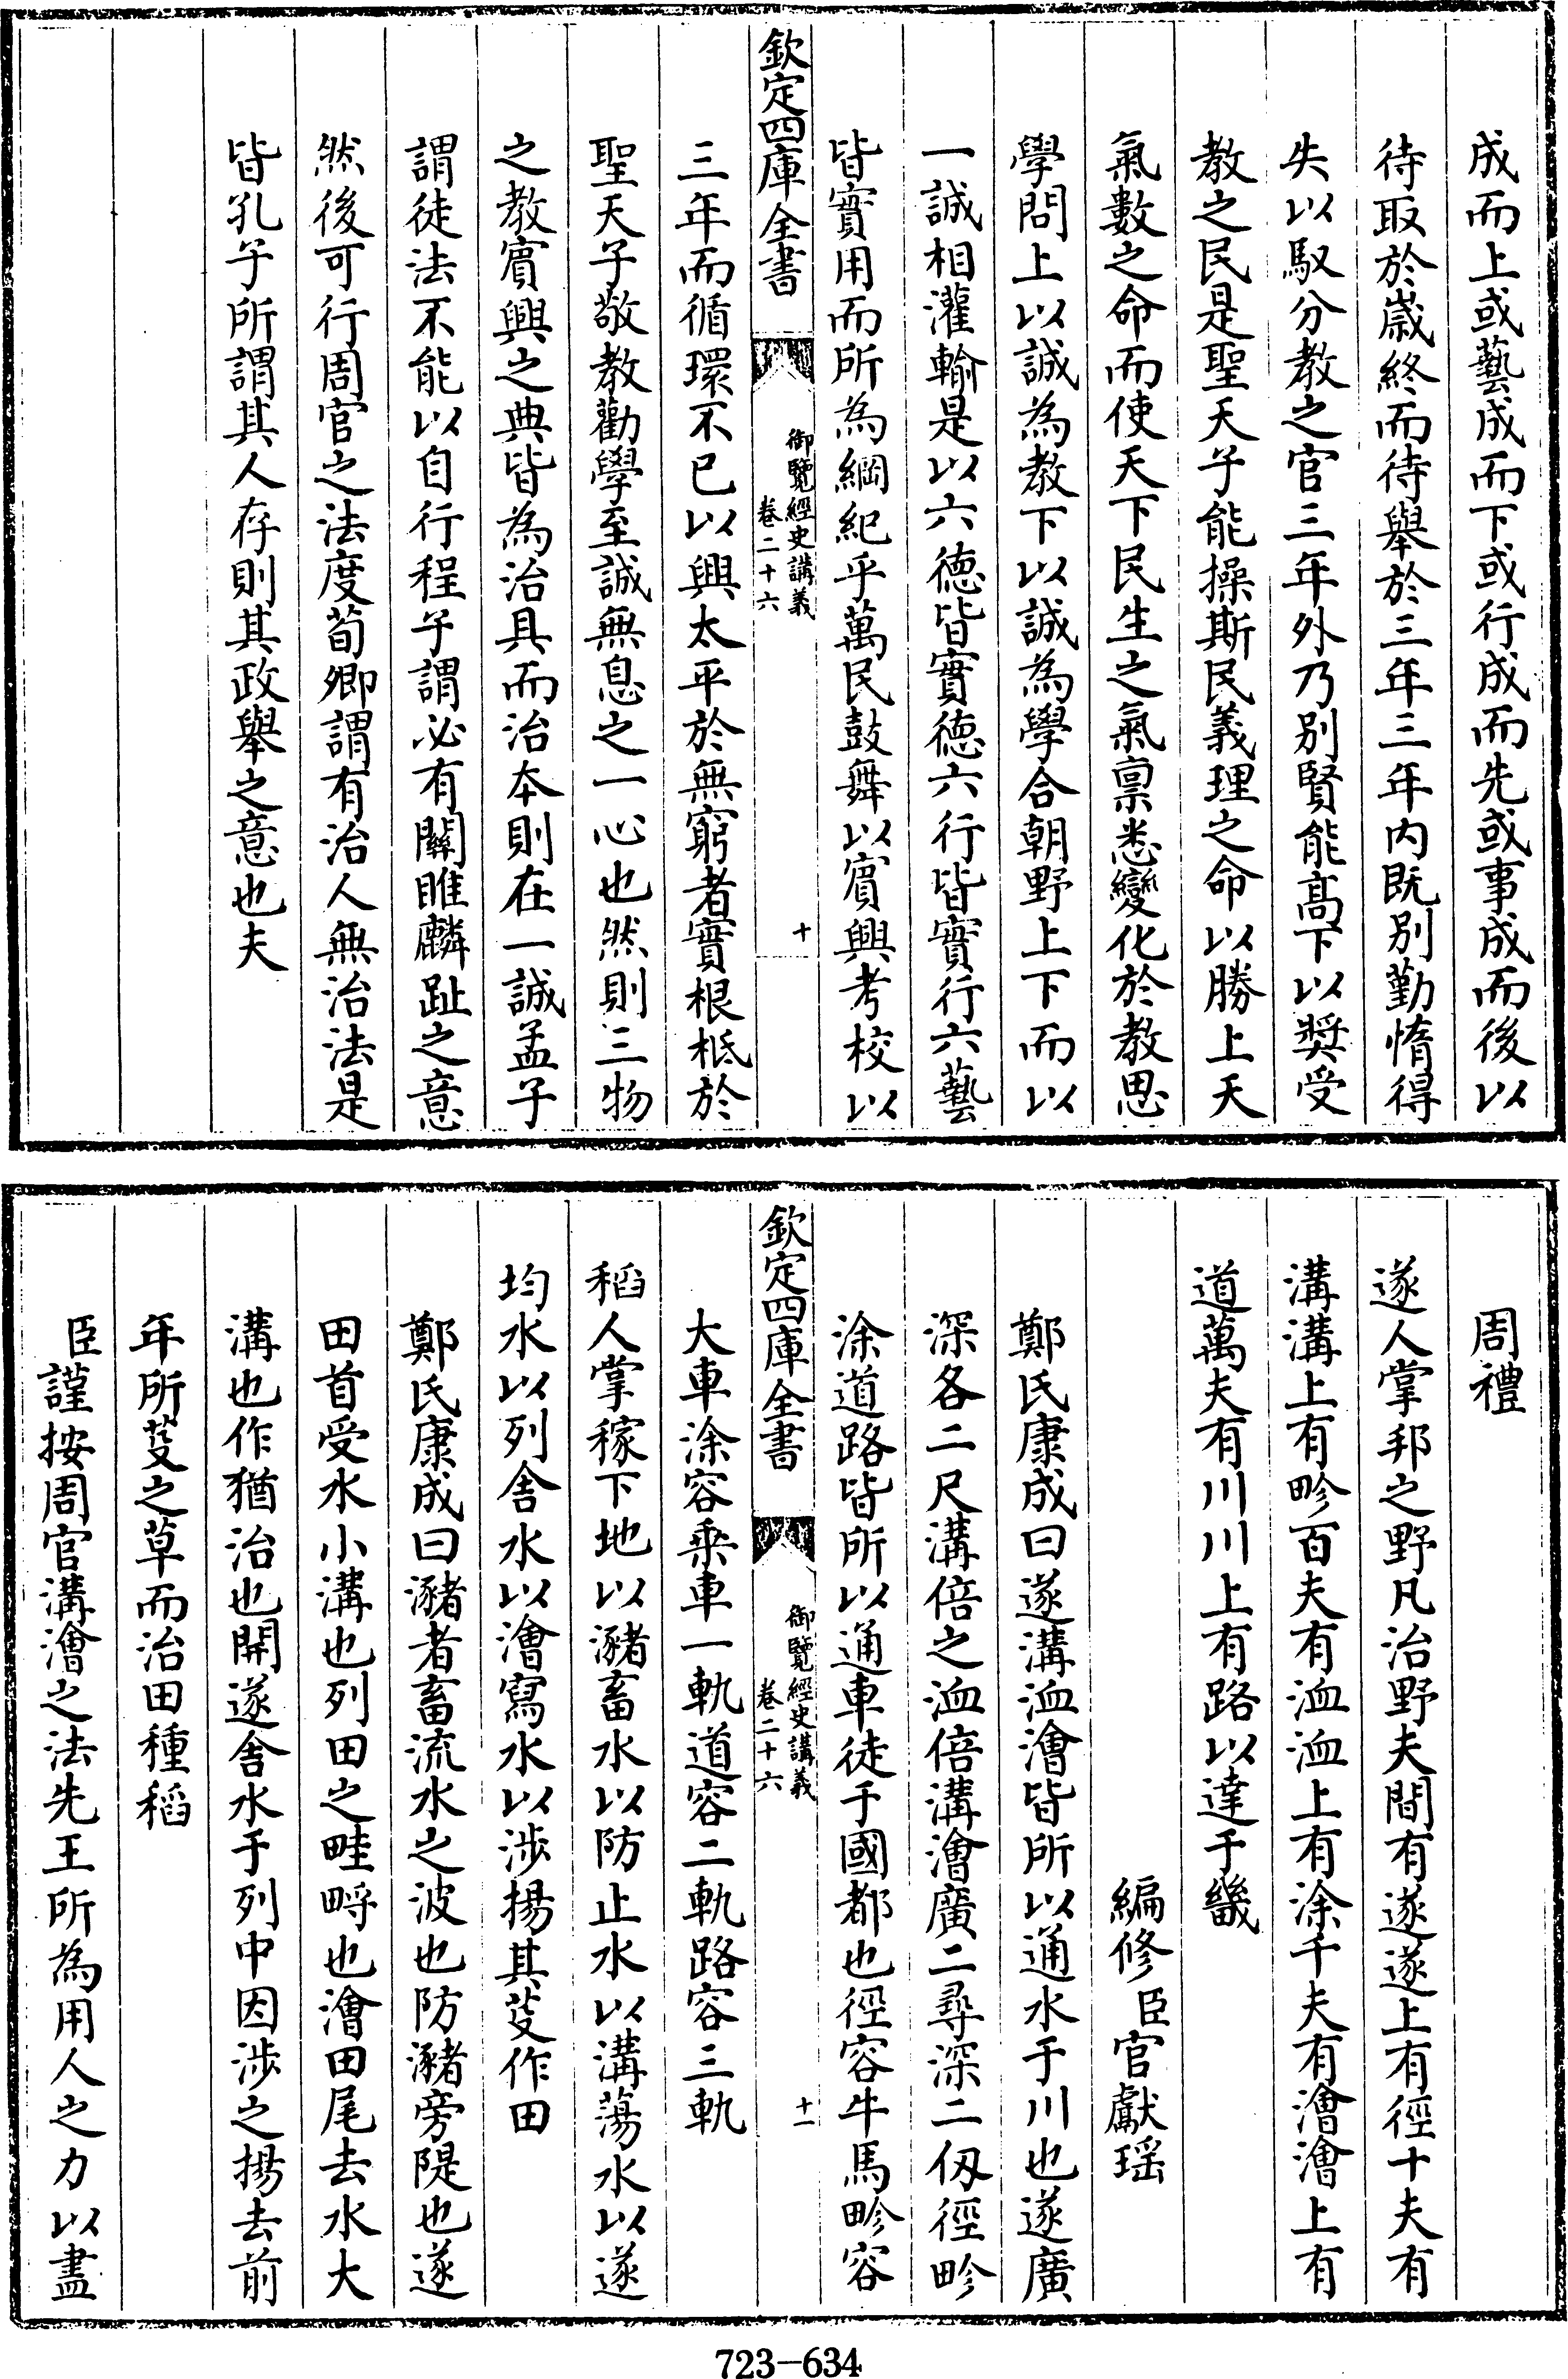 成而上或藝成而下或行成而先或事成而後以
待取於歲終而待舉於三年三年内既别勤惰得
失以馭分教之官三年外乃别賢能高下以奬受
教之民是聖天子能操斯民義理之命以勝上天
氣數之命而使天下民生之氣禀悉變化於教思
學問上以誠為教下以誠為學合朝野上下而以
一誠相灌輸是以六德皆實德六行皆實行六藝
皆實用而所為綱紀乎萬民鼓舞以賔興考校以
欽定四庫全書
御覽經史講義
卷二十六
十
三年而循環不已以興太平於無窮者實根柢於
聖天子敬教勸學至誠無息之一心也然則三物
之教賔興之典皆為治具而治本則在一誠孟子
謂徒法不能以自行程子謂必有關雎麟趾之意
然後可行周官之法度荀卿謂有治人無治法是
皆孔子所謂其人存則其政舉之意也夫
周禮
遂人掌邦之野凡治野夫間有遂遂上有徑十夫有
溝溝上有畛百夫有洫洫上有涂千夫有澮澮上有
道萬夫有川川上有路以達于畿
編修臣官獻瑶
鄭氏康成曰遂溝洫澮皆所以通水于川也遂廣
深各二尺溝倍之洫倍溝澮廣二尋深二仭徑畛
涂道路皆所以通車徒于國都也徑容牛馬畛容
欽定四庫全書
御覽經史講義
卷二十六
十一
大車涂容乘車一軌道容二軌路容三軌
稻人掌稼下地以瀦畜水以防止水以溝蕩水以遂
均水以列舍水以澮寫水以涉揚其芟作田
鄭氏康成曰瀦者畜流水之波也防瀦旁隄也遂
田首受水小溝也列田之畦㽟也澮田尾去水大
溝也作猶治也開遂舍水于列中因涉之揚去前
年所芟之草而治田種稻
臣謹按周官溝澮之法先王所為用人之力以盡
723-634